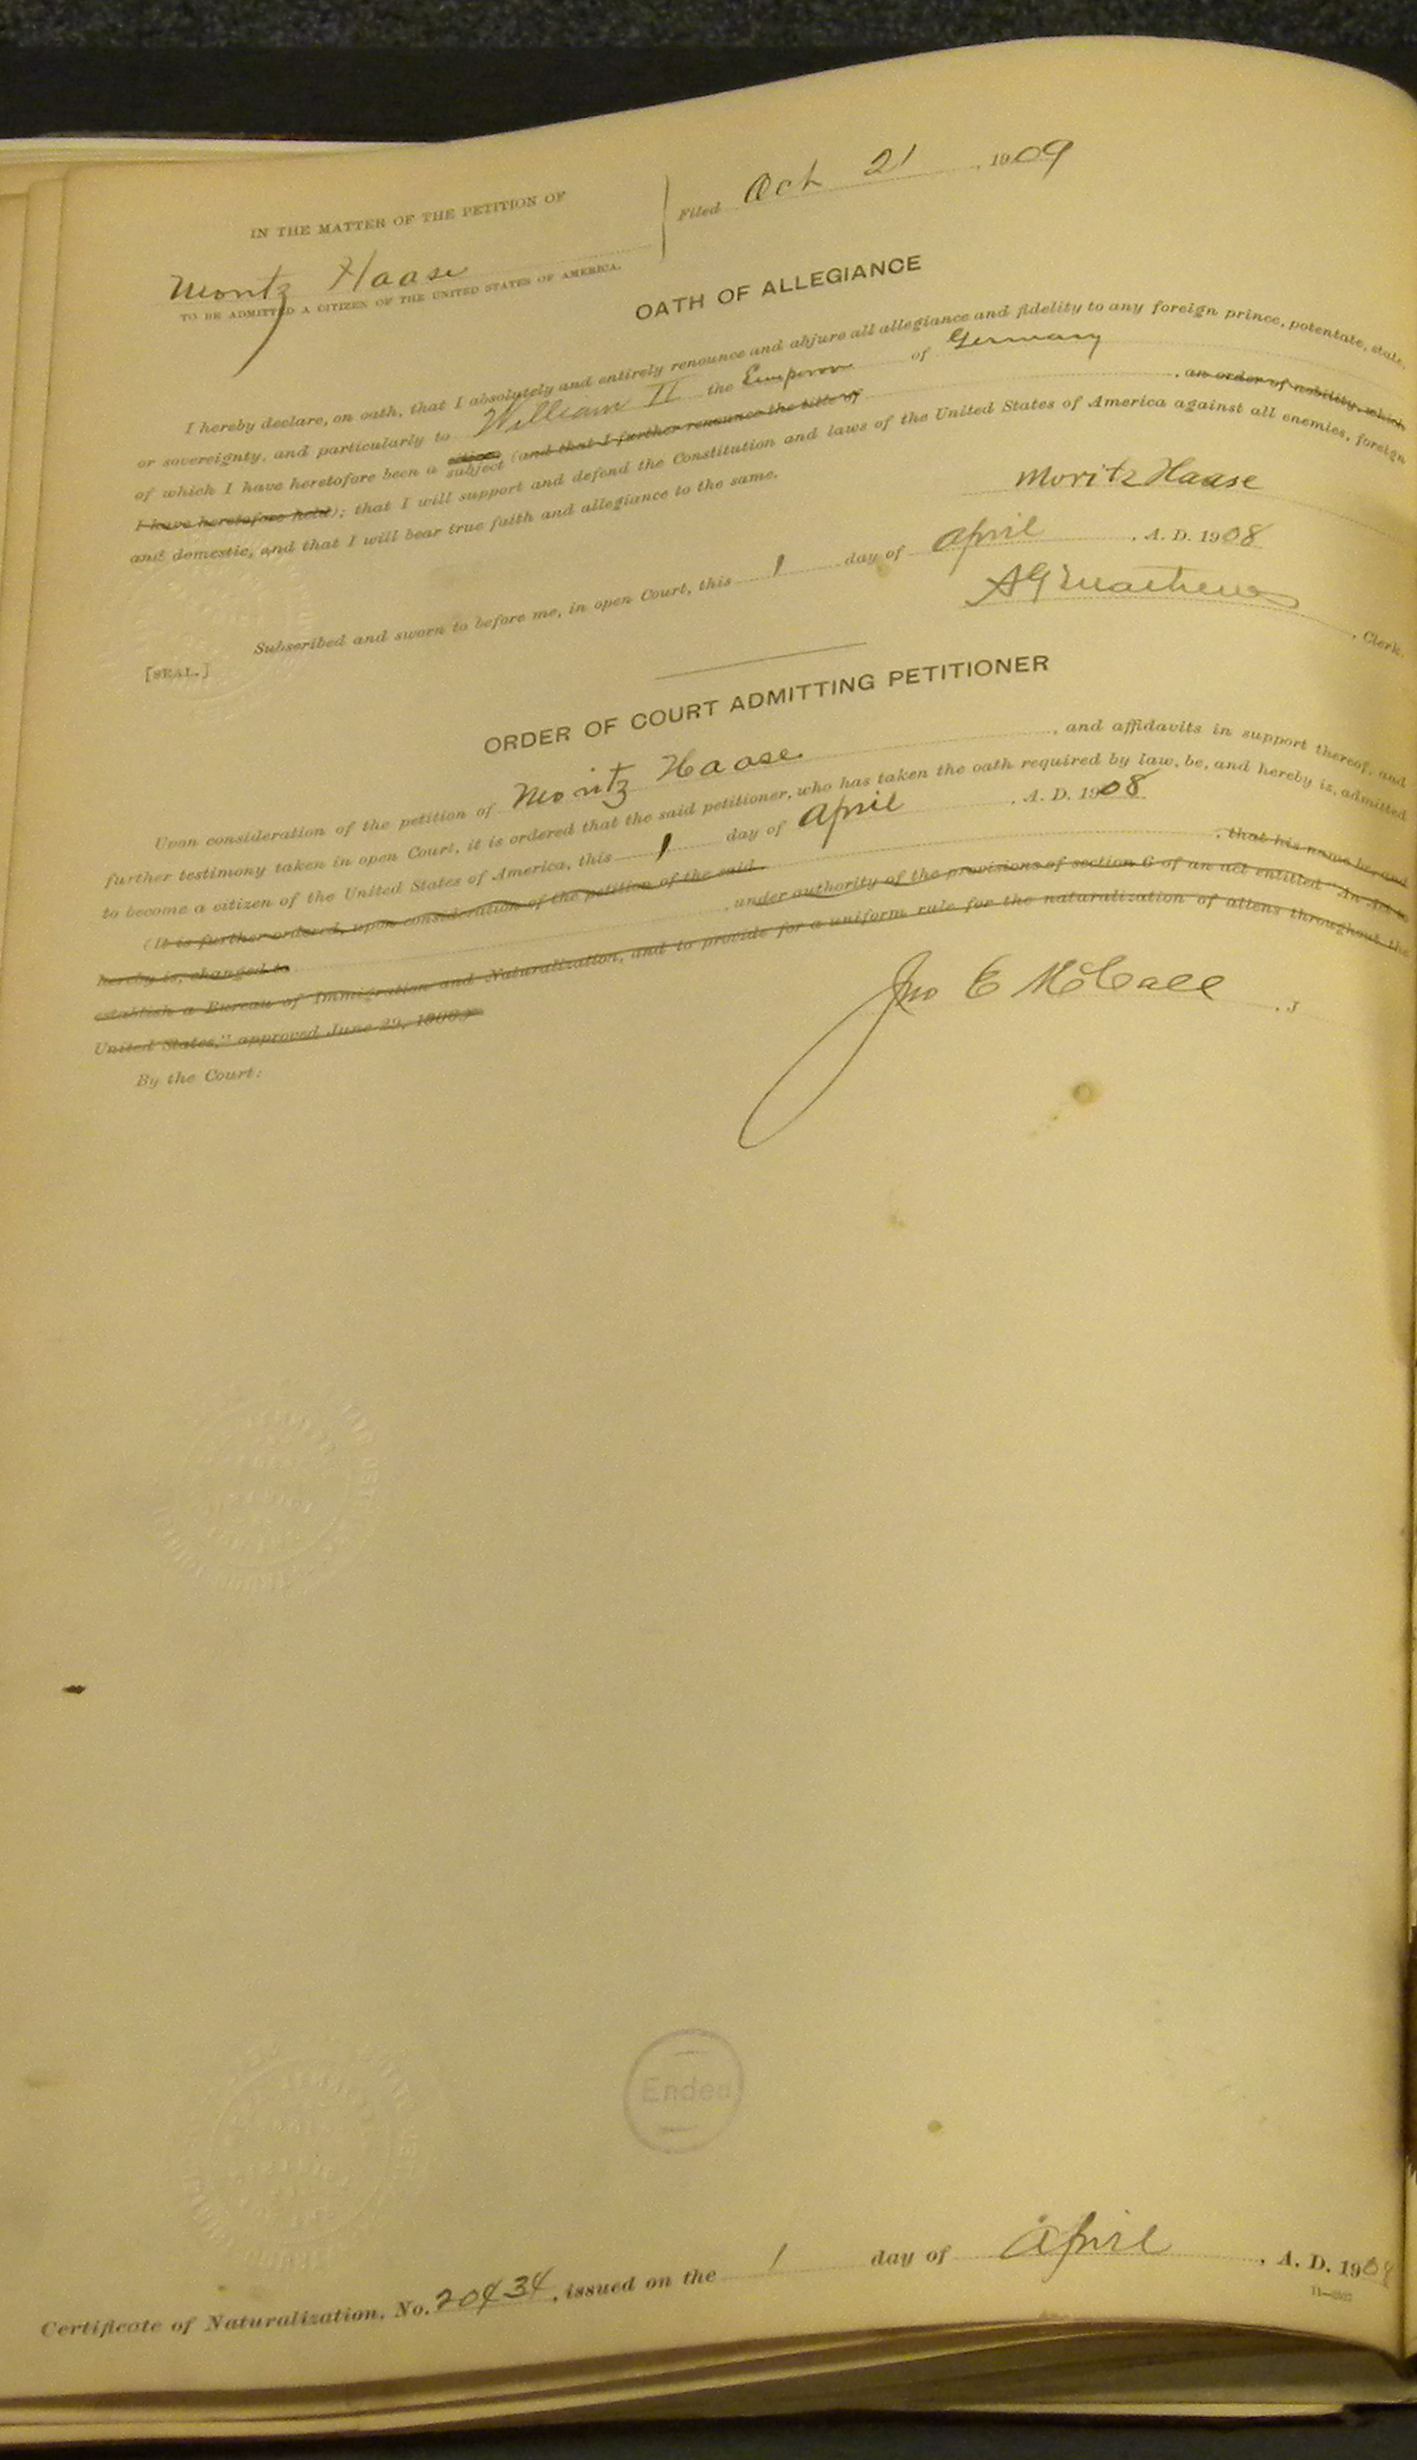 IN THE MATTER OF THE PETITION OF
Moritz Haase
TO BE ADMITTED A CITIZEN OF THE UNITED STATES OF AMERICA.
Filed Oct 21, 1909
OATH OF ALLEGIANCE
I hereby declare, on oath, that I absolutely and entirely renounce and abjure all allegiance and fidelity to any foreign prince, potentate, state,
or sovereignty, and particularly to William II the Emperor of Germany
of which I have heretofore been a citizen subject (and that I further renounce the title of , an order of nobility, which
I have heretofore held); that I will support and defend the Constitution and laws of the United States of America against all enemies, foreign
and domestic, and that I will bear true faith and allegiance to the same.
Moritz Haase
Subscribed and sworn to before me, in open Court, this 1 day of April, A. D. 1908
[SEAL.]
A G Mathews, Clerk.
ORDER OF COURT ADMITTING PETITIONER
Upon consideration of the petition of Moritz Haase, and affidavits in support thereof, and
further testimony taken in open Court, it is ordered that the said petitioner, who has taken the oath required by law, be, and hereby is, admitted
to become a citizen of the United States of America, this 1 day of April, A. D. 1908
(It is further ordered, upon consideration of the petition of the said , that his name be, and
hereby is, changed to , under authority of the provisions of section 6 of an act entitled "An Act to
establish a Bureau of Immigration and Naturalization, and to provide for a uniform rule for the naturalization of aliens throughout the
United States," approved June 29, 1906.)
By the Court:
Jno E McCall, J
Ended
Certificate of Naturalization, No. 20434, issued on the 1 day of April, A. D. 190